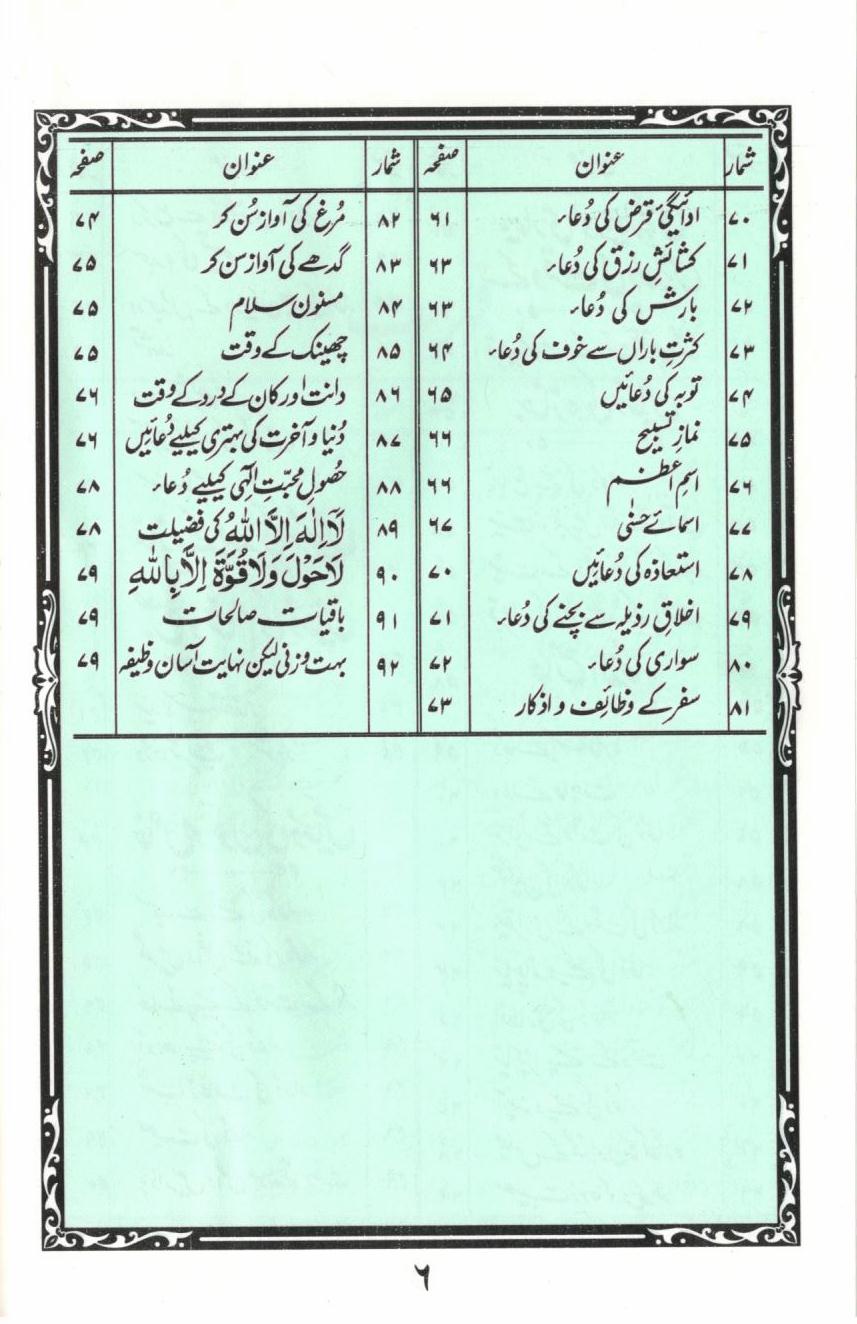 شمار عنوان صفحہ شمار عنوان صفحہ
۷۰ ادائیگیٔ قرض کی دُعاء ۶۱ ۸۲ مُرغ کی آواز سُن کر ۷۴
۷۱ کشائشِ رزق کی دُعاء ۶۳ ۸۳ گدھے کی آواز سن کر ۷۵
۷۲ بارش کی دُعاء ۶۳ ۸۴ مسنون سلام ۷۵
۷۳ کثرتِ باراں سے خوف کی دُعاء ۶۴ ۸۵ چھینک کے وقت ۷۵
۷۴ توبہ کی دُعائیں ۶۵ ۸۶ دانت اور کان کے درد کے وقت ۷۶
۷۵ نمازِ تسبیح ۶۶ ۸۷ دُنیا و آخرت کی بہتری کیلیے دُعائیں ۷۶
۷۶ اسمِ اعظم ۶۶ ۸۸ حُصولِ محبّتِ الٰہی کیلیے دُعاء ۷۸
۷۷ اسمائے حسنٰی ۶۷ ۸۹ لَآ اِلٰهَ اِلَّا اللهُ کی فضیلت ۷۸
۷۸ استعاذہ کی دُعائیں ۷۰ ۹۰ لَاحَوْلَ وَلَا قُوَّةَ اِلَّا بِاللهِ ۷۹
۷۹ اخلاقِ رذیلہ سے بچنے کی دُعاء ۷۱ ۹۱ باقیات صالحات ۷۹
۸۰ سواری کی دُعاء ۷۲ ۹۲ بہت وزنی لیکن نہایت آسان وظیفہ ۷۹
۸۱ سفر کے وظائف و اذکار ۷۳
۶